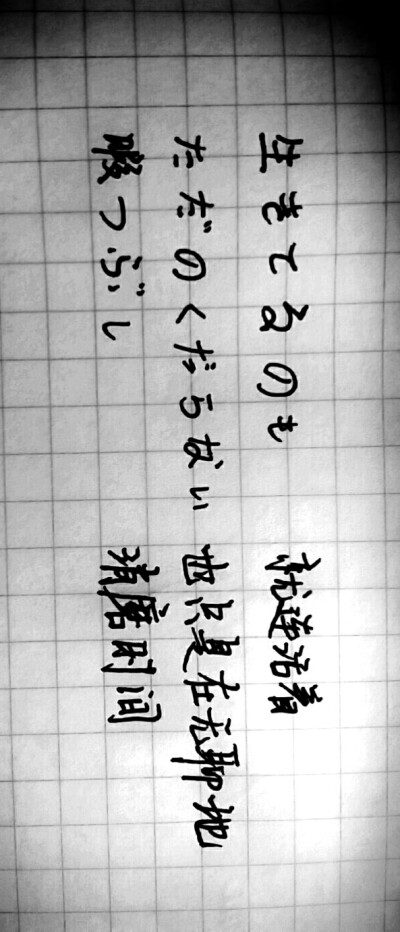 生きてるのも
ただのくだらない
暇つぶし
就连活着
也只是在无聊地
消磨时间